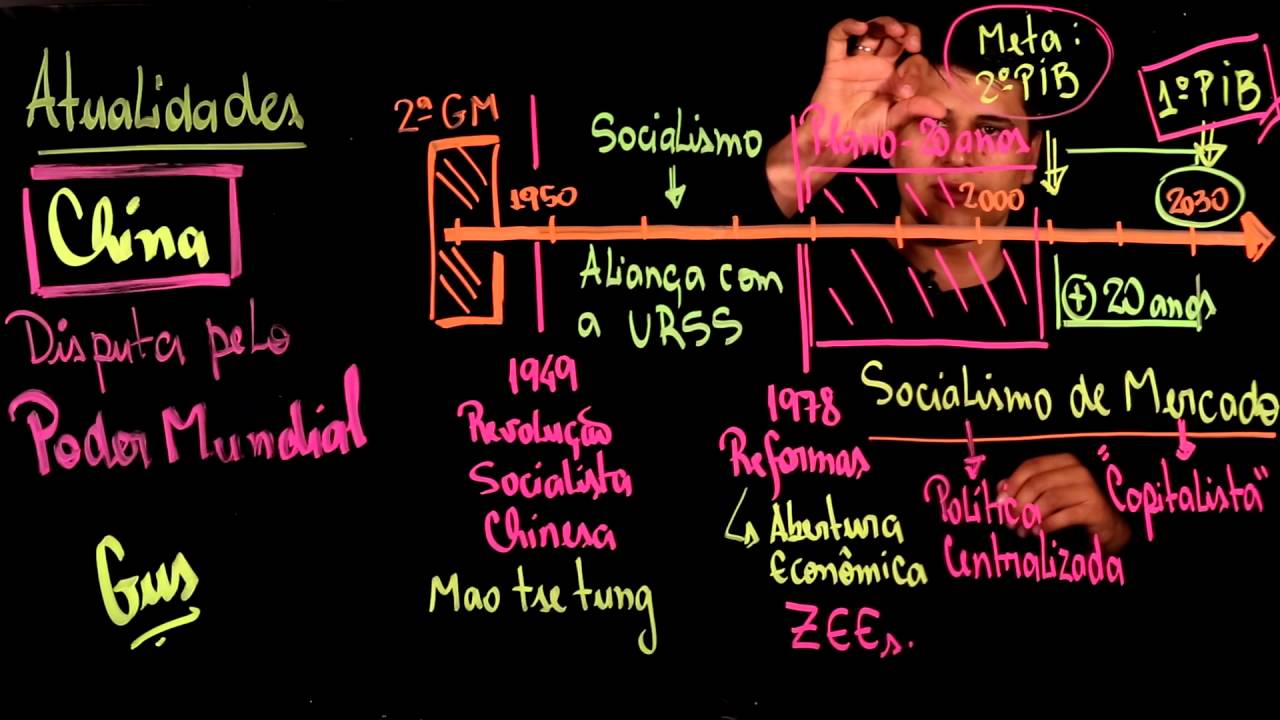 Atualidades
China
Disputa pelo
Poder Mundial
Gus
2ª GM
1950
Socialismo
Aliança com
a URSS
1949
Revolução
Socialista
Chinesa
Mao tse tung
Plano - 30 anos
2000
1978
Reformas
↳ Abertura
Econômica
ZEEs.
Meta:
2º PIB
1º PIB
2030
+ 20 anos
Socialismo de Mercado
Política
Centralizada
"Capitalista"